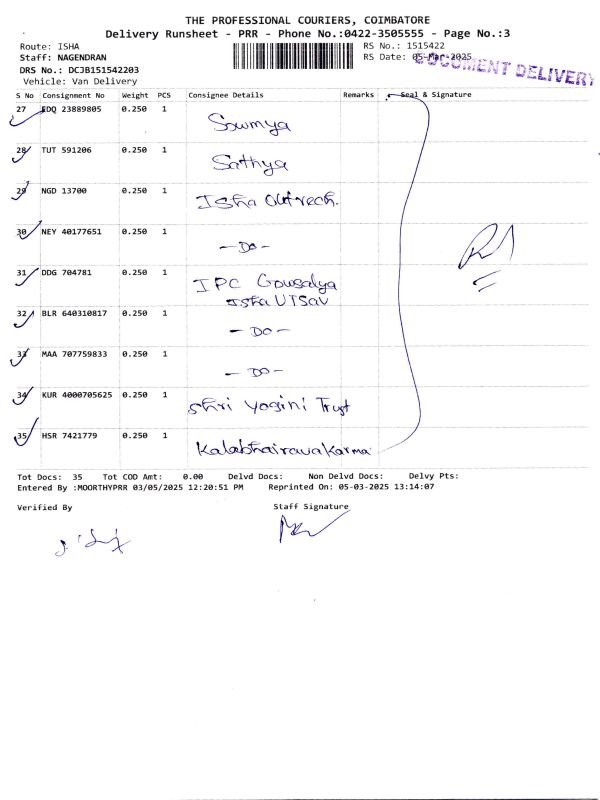 THE PROFESSIONAL COURIERS, COIMBATORE
Delivery Runsheet - PRR - Phone No.:0422-3505555 - Page No.:3
Route: ISHA RS No.: 1515422
Staff: NAGENDRAN RS Date: 05-Mar-2025
DOCUMENT DELIVERY
DRS No.: DCJB151542203
Vehicle: Van Delivery
S No Consignment No Weight PCS Consignee Details Remarks Seal & Signature
27 EDQ 23889805 0.250 1 Sowmya
28 TUT 591206 0.250 1 Sathya
29 NGD 13700 0.250 1 Isha Outreach.
30 NEY 40177651 0.250 1 - Do -
31 DDG 704781 0.250 1 IPC Gowsalya
Isha UTSAV
32 BLR 640310817 0.250 1 - DO -
33 MAA 707759833 0.250 1 - DO -
34 KUR 4000705625 0.250 1 Shri Yogini Trust
35 HSR 7421779 0.250 1 Kalabhairava Karma
Tot Docs: 35 Tot COD Amt: 0.00 Delvd Docs: Non Delvd Docs: Delvy Pts:
Entered By :MOORTHYPRR 03/05/2025 12:20:51 PM Reprinted On: 05-03-2025 13:14:07
Verified By Staff Signature